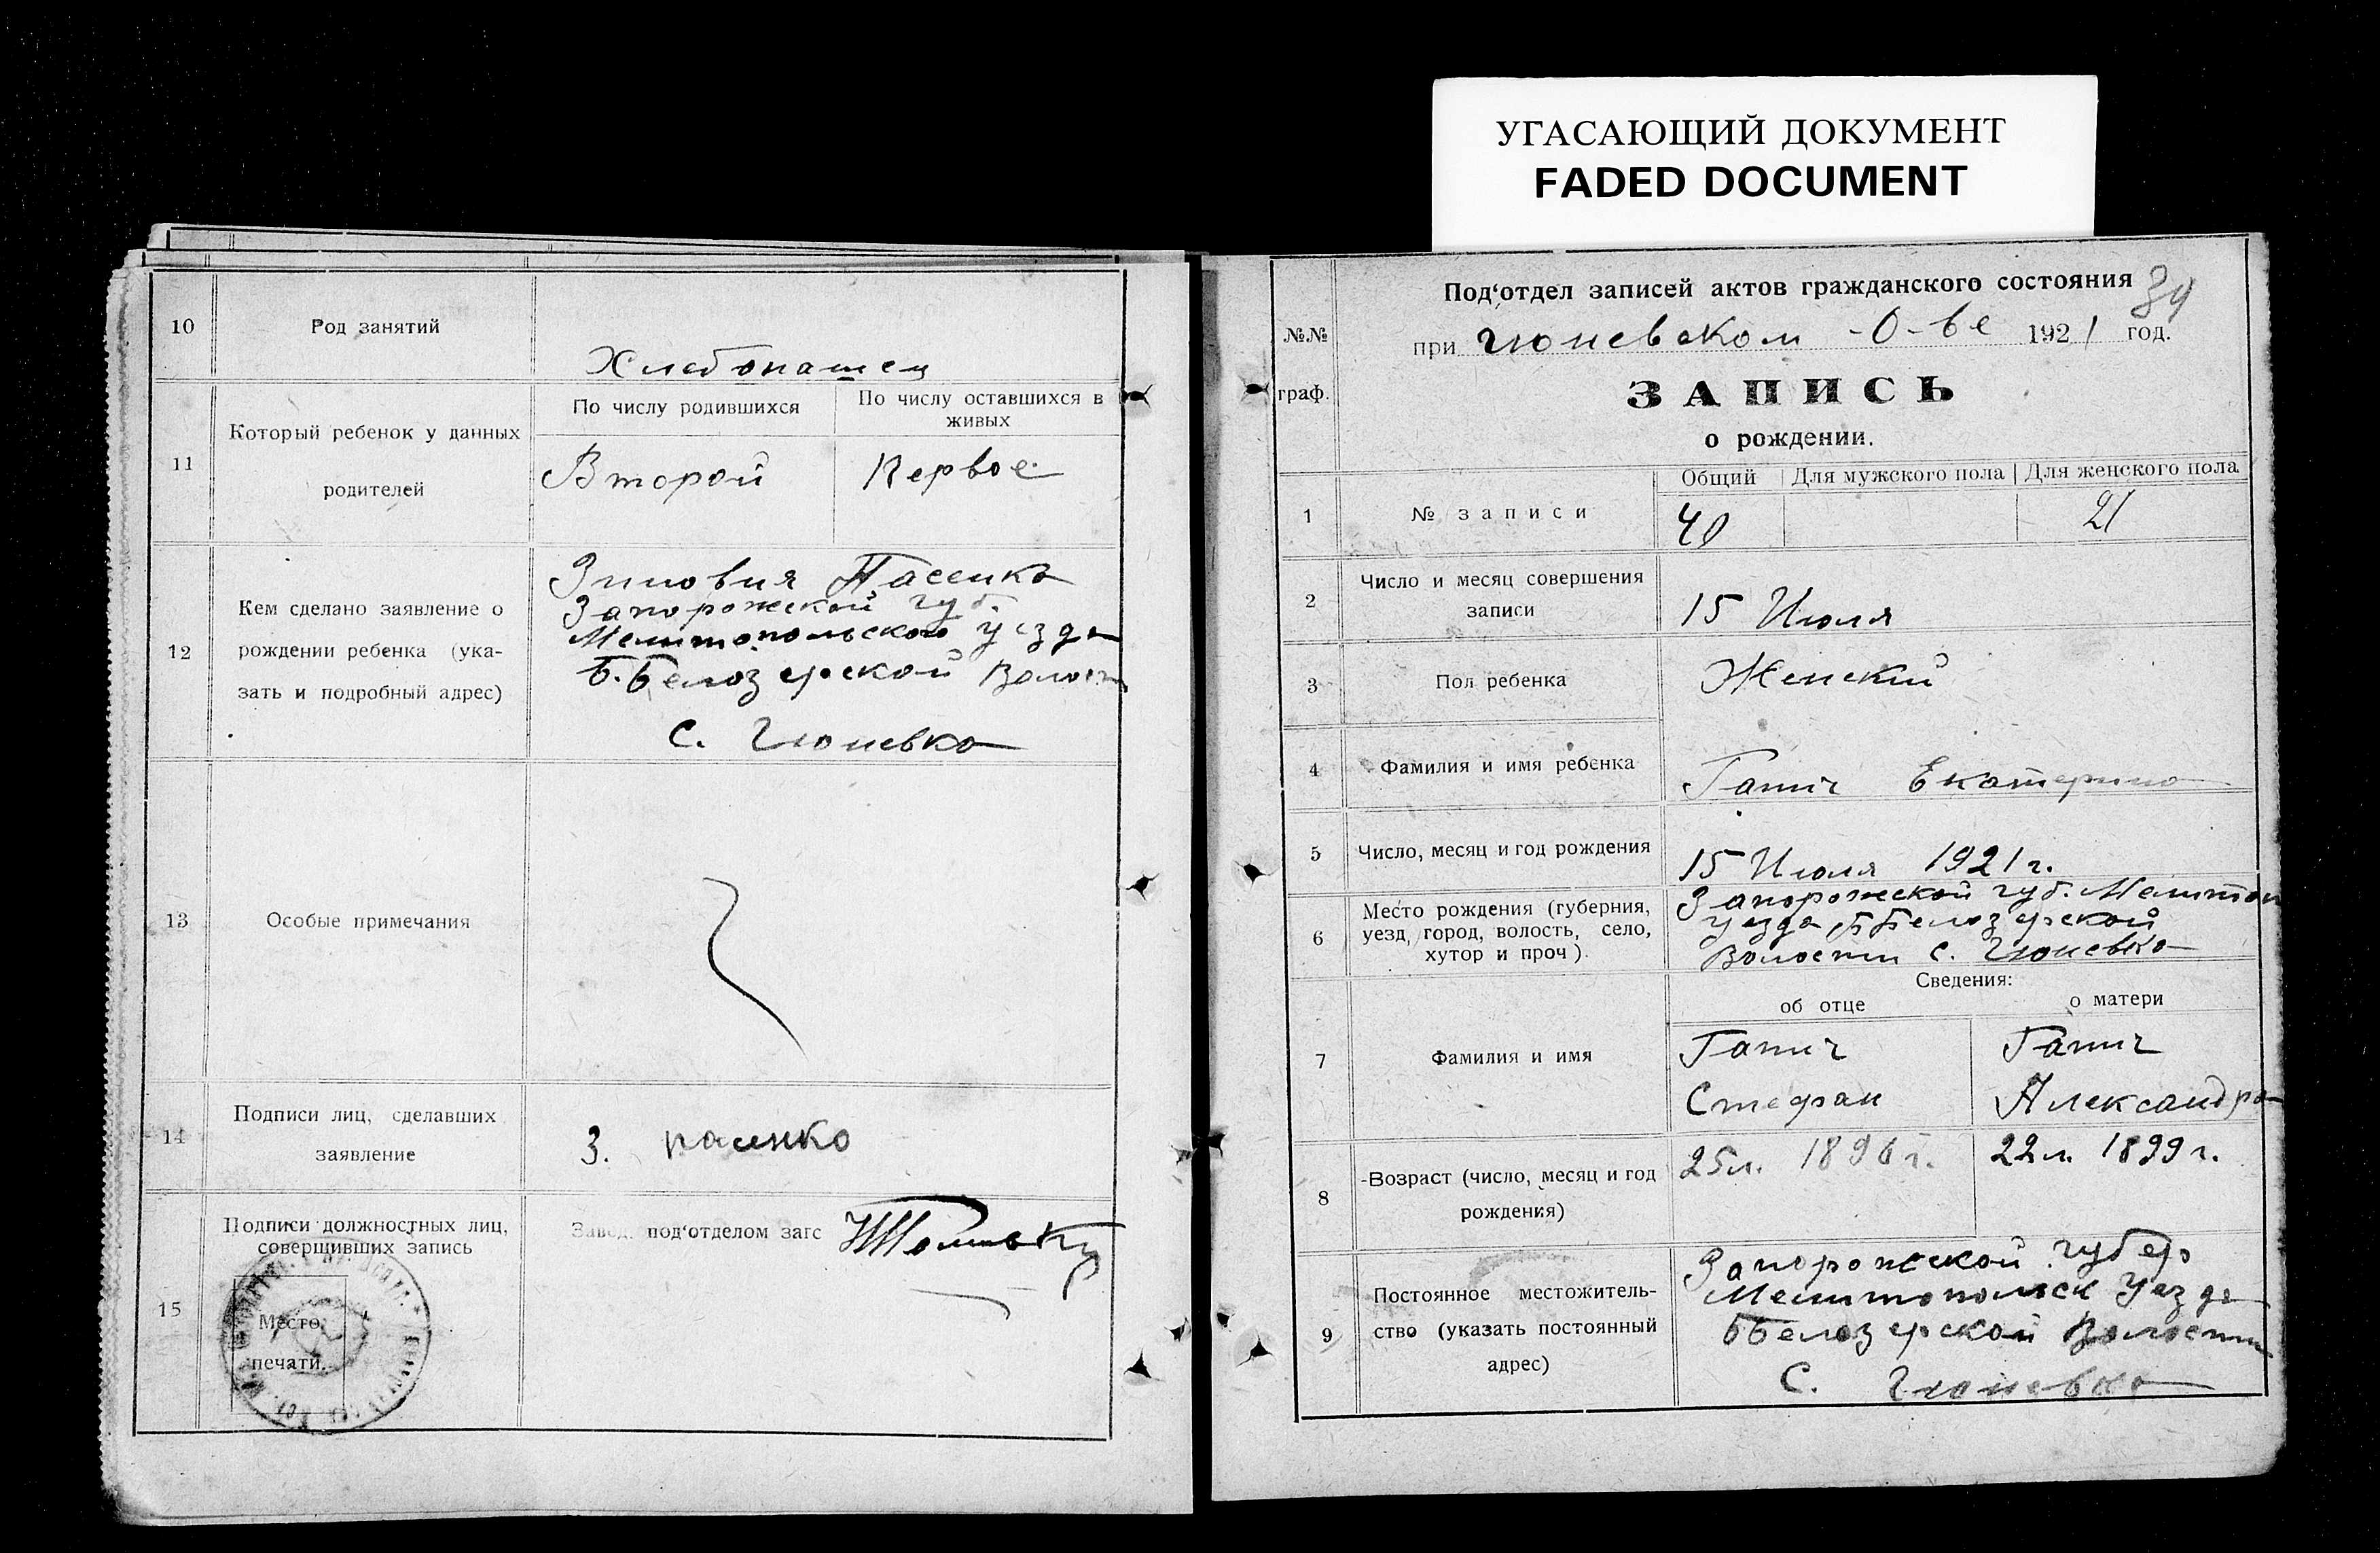 УГАСАЮЩИЙ ДОКУМЕНТ
FADED DOCUMENT
10
Род занятий
Хлебопашец
11
Который ребенок у данных
родителей
По числу родившихся
По числу оставшихся в
живых
Второй
Первое
12
Кем сделано заявление о
рождении ребенка (ука-
зать и подробный адрес)
Зиновия Пасенко
Запорожской губ.
Мелитопольского уезда
Б. Белозерской Волости
С. Гюневка
13
Особые примечания
14
Подписи лиц, сделавших
заявление
З. пасенко
15
Подписи должностных лиц,
совершивших запись
Место
печати.
Завед. под'отделом загс
№№
граф.
Под'отдел записей актов гражданского состояния
34
при Гюневском -О-ве 1921 год.
ЗАПИСЬ
о рождении.
Общий
Для мужского пола
Для женского пола
1
№ записи
40
21
2
Число и месяц совершения
записи
15 Июля
3
Пол ребенка
Женский
4
Фамилия и имя ребенка
Гапич Екатерина
5
Число, месяц и год рождения
15 Июля 1921 г.
6
Место рождения (губерния,
уезд, город, волость, село,
хутор и проч).
Запорожской губ. Мелитоп
уезда ББелозерской
Волости с. Гюневка
Сведения:
об отце
о матери
7
Фамилия и имя
Гапич
Стефан
Гапич
Александра
8
-Возраст (число, месяц и год
рождения)
25л. 1896 г.
22 л. 1899 г.
9
Постоянное местожитель-
ство (указать постоянный
адрес)
Запорожской губер
Мелитопольск Уезда
ББелозерской Волости
С. Гюневка